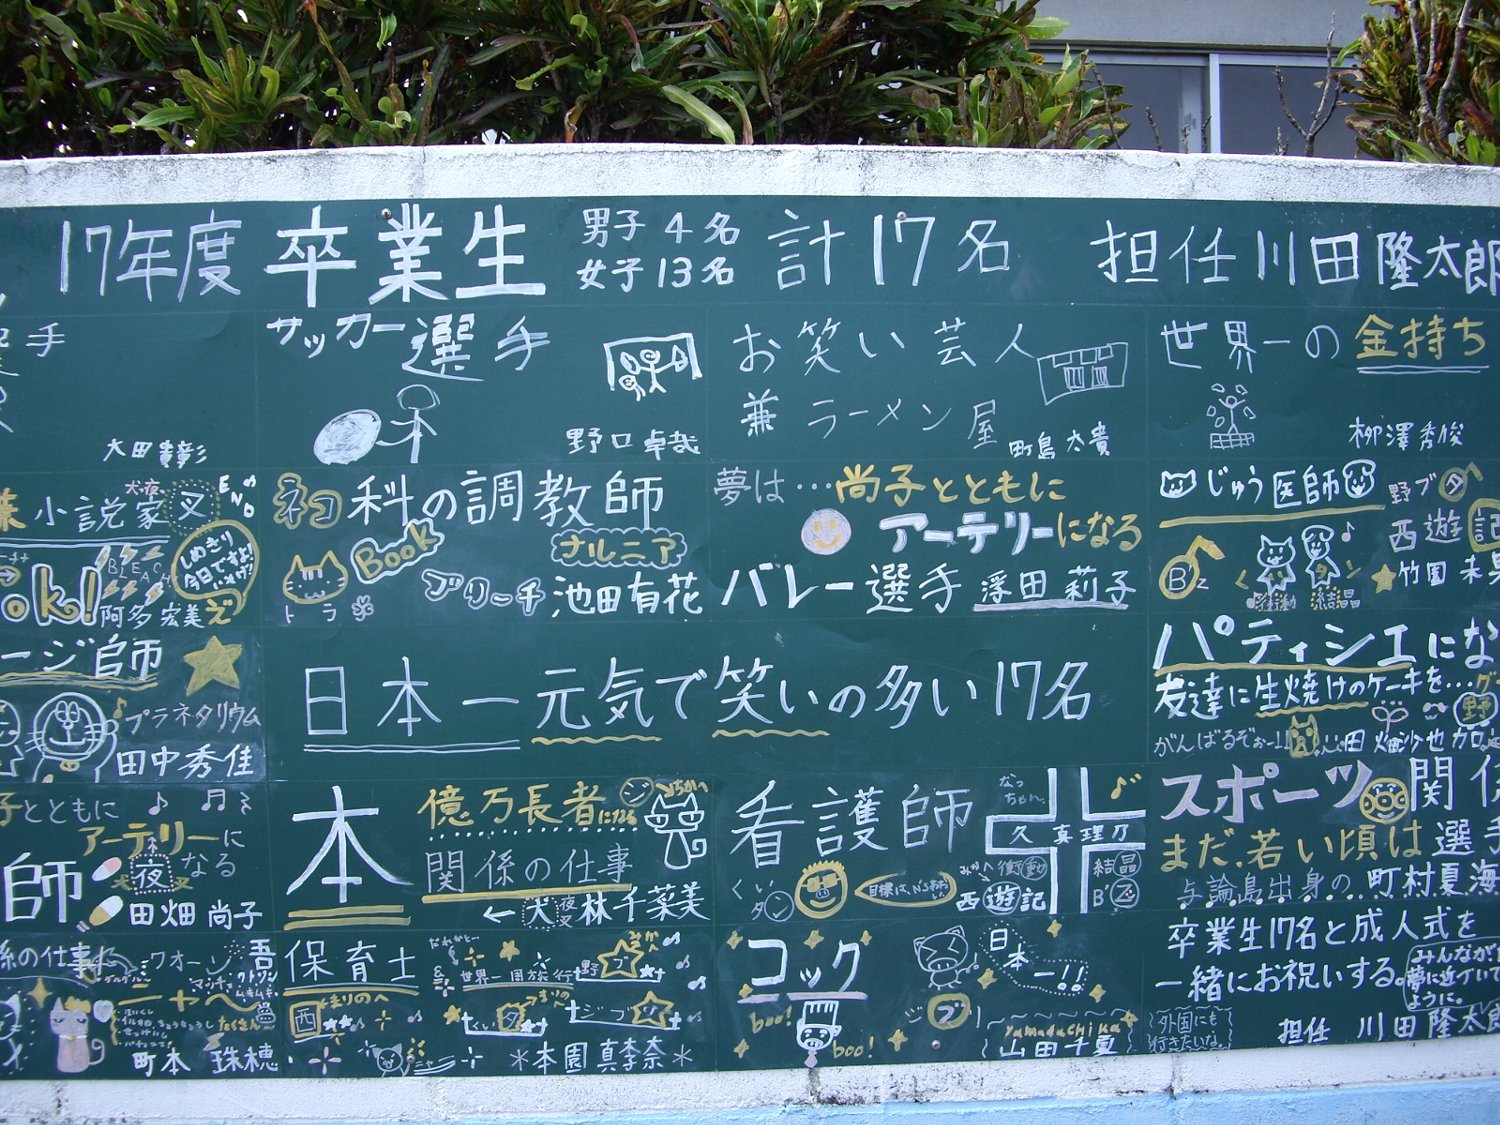 17年度 卒業生 男子 4名 女子 13名 計17名 担任 川田 隆太郎
手
大田
サッカー選手
野口 卓哉
お笑い芸人
兼 ラーメン屋
町島 大貴
世界一の金持ち
柳澤 秀俊
小説家
犬夜叉
END
しめきり
今日ですよ!
阿多 宏美
ネコ科の調教師
Book
ナルニア
トラ
ブリーチ 池田有花
夢は…尚子とともに
アーテリーになる
バレー選手 浮田 莉子
じゅう医師
野ブタ
西遊記
B'z
くいタン
衝動 結晶
竹園
ージ師
プラネタリウム
田中秀佳
日本一元気で笑いの多い17名
パティシエにな
友達に生焼けのケーキを…
がんばるぞぉー!!
子とともに
アーテリーに
なる
師
犬夜叉
田畑 尚子
本
億万長者になる
関係の仕事
←犬夜叉 林千菜美
看護師
なっちゃん
久 真理庁
くいタン
衝動
西遊記
結晶
B'z
スポーツ関係
まだ、若い頃は選手
与論島出身の…町村夏海
係の仕事に
ワオーン
町本 珠穂
保育士
世界一周旅行
野ブタ
西
くいタン
＊本園 真李奈＊
コック
日本一!!
boo!
boo!
ブ
Yamada Chika
山田千夏
卒業生17名と成人式を
一緒にお祝いする。
みんなが
夢に近づいて
ように。
外国にも
行きたいな。
担任 川田隆太郎